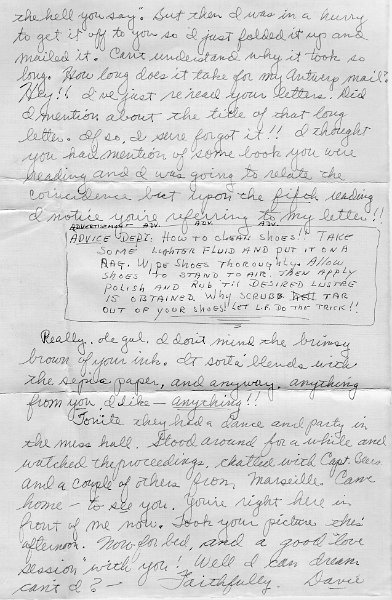 the hell you say". But then I was in a hurry
to get it off to you so I just folded it up and
mailed it. Can't understand why it took so
long. How long does it take for my mail?
Hey!! I've just re'read your letters. Did
I mention about the title of that long
letter. If so, I sure forgot it!! I thought
you had mention of some book you were
reading and I was going to relate the
coincidence but upon the fifth reading
I notice you're referring to my letter!!
ADVERTISEMENT ADV. ADV. ADV.
ADVICE DEPT: HOW TO CLEAN SHOES!! TAKE
SOME LIGHTER FLUID AND PUT IT ON A
RAG. WIPE SHOES THOROUGHLY. ALLOW
SHOES TO STAND TO AIR. THEN APPLY
POLISH AND RUB TILL DESIRED LUSTRE
IS OBTAINED. WHY SCRUBB TAR
OUT OF YOUR SHOES! LET L.F. DO THE TRICK!!
Really, ole gal, I don't mind the
brown of your ink. It sorta' blends with
the sepia paper, and anyway, anything
from you I like — anything!!
Tonite they had a dance and party in
the mess hall. Stood around for a while and
watched the proceedings, chatted with Capt.
and a couple of others from Marseille. Came
home — to see you. You're right here in
front of me now. Took your picture this
afternoon. Now for bed, and a good "love
session" with you! Well I can dream
can't I? — Faithfully, Dave